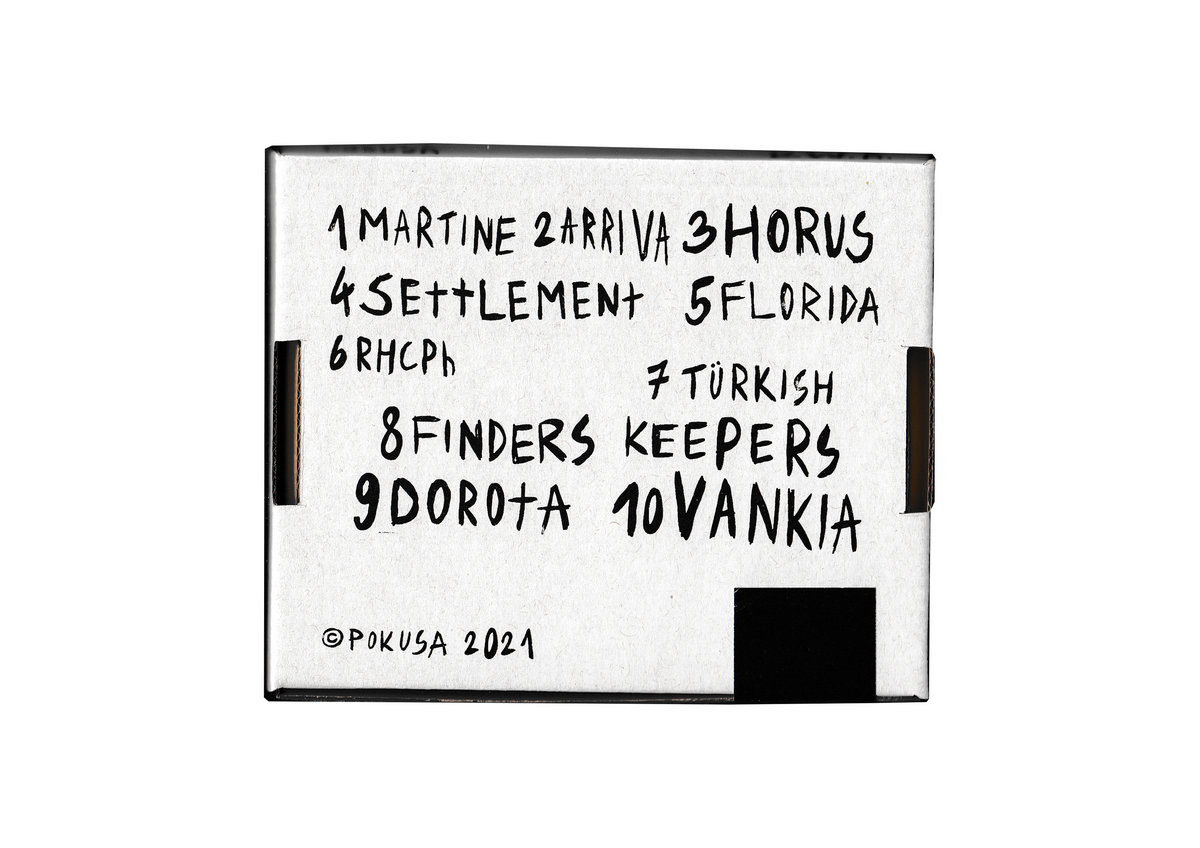 1 MARTINE 2 ARRIVA 3 HORUS
4 SEttLEMENt 5 FLORIDA
6 RHCPh
7 TÜRKISH
8 FINDERS KEEPERS
9 DOROtA 10 VANKIA
© POKUSA 2021